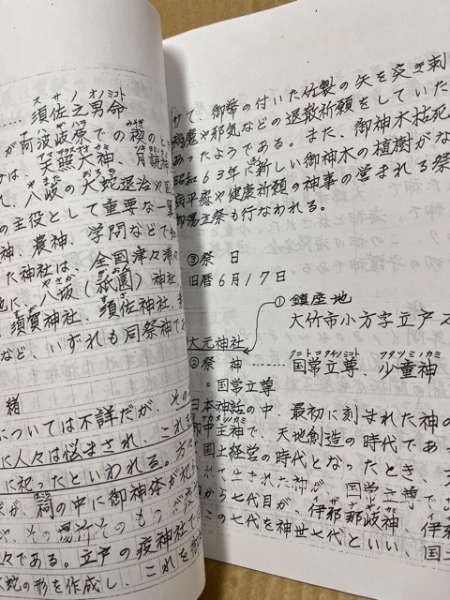 スサノオノミコト
須佐之男命
が阿波岐原での禊のと
は、天照大神、月読
れ、八岐の大蛇退治や国
の主役として重要な
神、農神、学問などで
た神社は、全国津々
地に、八坂(祇園)神社、
須賀神社、須佐神社、
など、いずれも同祭神で
緒
については不詳だが、その
に人々は悩まされ、これ
に祀ったといわれる。
祠の中に御神体が祀
々である。立戸の疫神社で
大蛇の形を作成し、これを
けて、御幣の付いた竹製の矢を突き刺
病魔や邪気などの退散祈願をしていた
あったようである。また、御神木枯死
昭和63年に新しい御神木の植樹がな
病平癒や健康祈願の神事の営まれる祭
行なわれる。
③祭 日
旧暦6月17日
①鎮座地
大竹市小方字立戸
大元神社
②祭 神
国常立尊、少童神
。国常立尊
日本神話の中、最初に刻まれた神の
御中主神で、天地創造の時代であっ
国土経営の時代となったとき、
れて生まれた神が、国常立尊で、
から七代目が、伊那那岐神、伊
この七代を神世七代といい、国